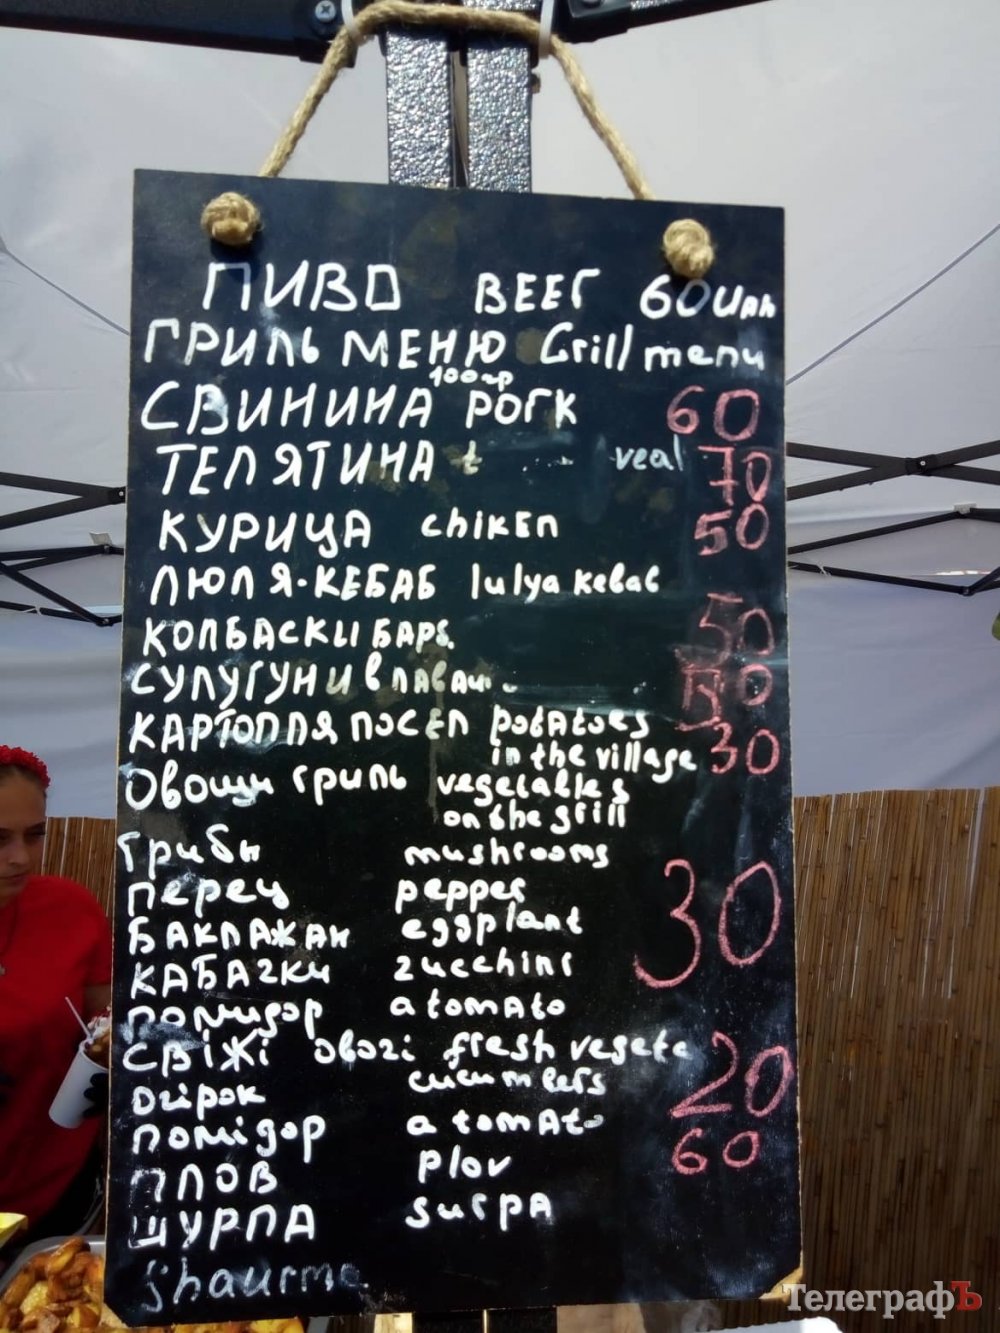 ПИВО BEEr 60 UAh
ГРИЛЬ МЕНЮ Grill menu
100гр
СВИНИНА РОГК 60
ТЕЛЯТИНА veal 70
КУРИЦА chiKEn 50
ЛЮЛЯ-КЕБАБ lulya kebab
КОЛБАСКЫ БАРБ. 50
СУЛУГУНИ В ЛАВАШ.
КАРТОПЛЯ ПОСЕЛ potAtoes
in the village 30
Овощи гриль vegetables
on the grill
Грибы mushrooms
Перец pepper
БАКЛАЖАН eggplant 30
КАБАЧКИ zucchini
помидор a tomAto
СВІЖІ овочі fresh vegete
огірок cucumbers 20
помідор a tomAto
ПЛОВ plov 60
ШУРПА surpA
Shaurma
ТелеграфЪ